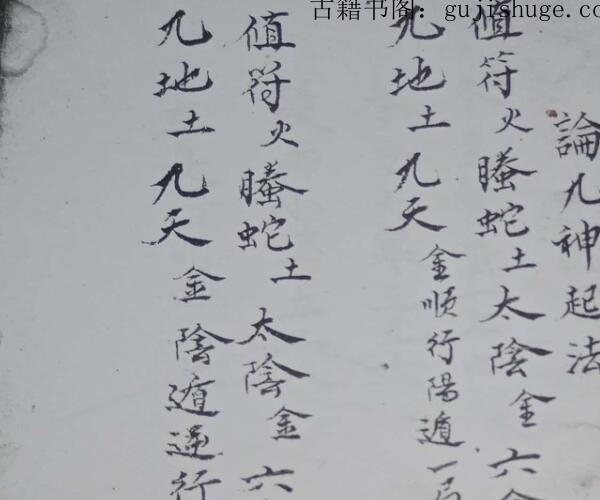 古籍书阁：gujishuge.co
論九神起法
值符火螣蛇土太陰金六合
九地土九天金順行陽遁一局
值符火螣蛇土太陰金六
九地土九天金陰遁逆行